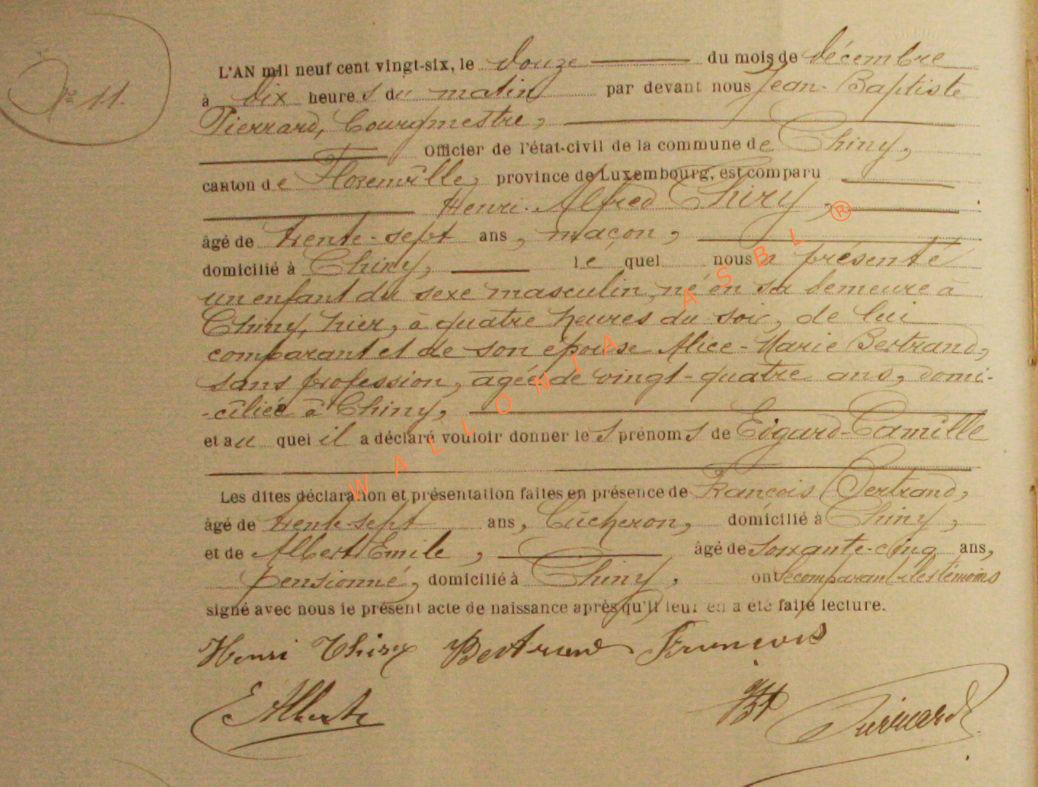 L'AN mil neuf cent vingt-six, le douze du mois de décembre
N° 11.
à dix heures du matin par devant nous Jean-Baptiste
Pierrard, Bourgmestre,
Officier de l'état-civil de la commune de Chiny,
canton de Florenville, province de Luxembourg, est comparu
Henri-Alfred Thiry,
âgé de trente-sept ans, maçon,
domicilié à Chiny, le quel nous a présenté
un enfant du sexe masculin, né en sa demeure à
Chiny, hier, à quatre heures du soir, de lui
comparant et de son épouse Alice-Marie Bertrand,
sans profession, âgée de vingt-quatre ans, domi-
-ciliée à Chiny,
et au quel il a déclaré vouloir donner les prénoms de Edgard-Camille
Les dites déclaration et présentation faites en présence de François Bertrand,
âgé de trente-sept ans, bûcheron, domicilié à Chiny,
et de Albert Emile, âgé de soixante-cinq ans,
pensionné, domicilié à Chiny, ont le comparant et les témoins
signé avec nous le présent acte de naissance après qu'il leur en a été faite lecture.
Henri Thiry Bertrand François
E Albert JB Pierrard
WALLONIA ASBL ®